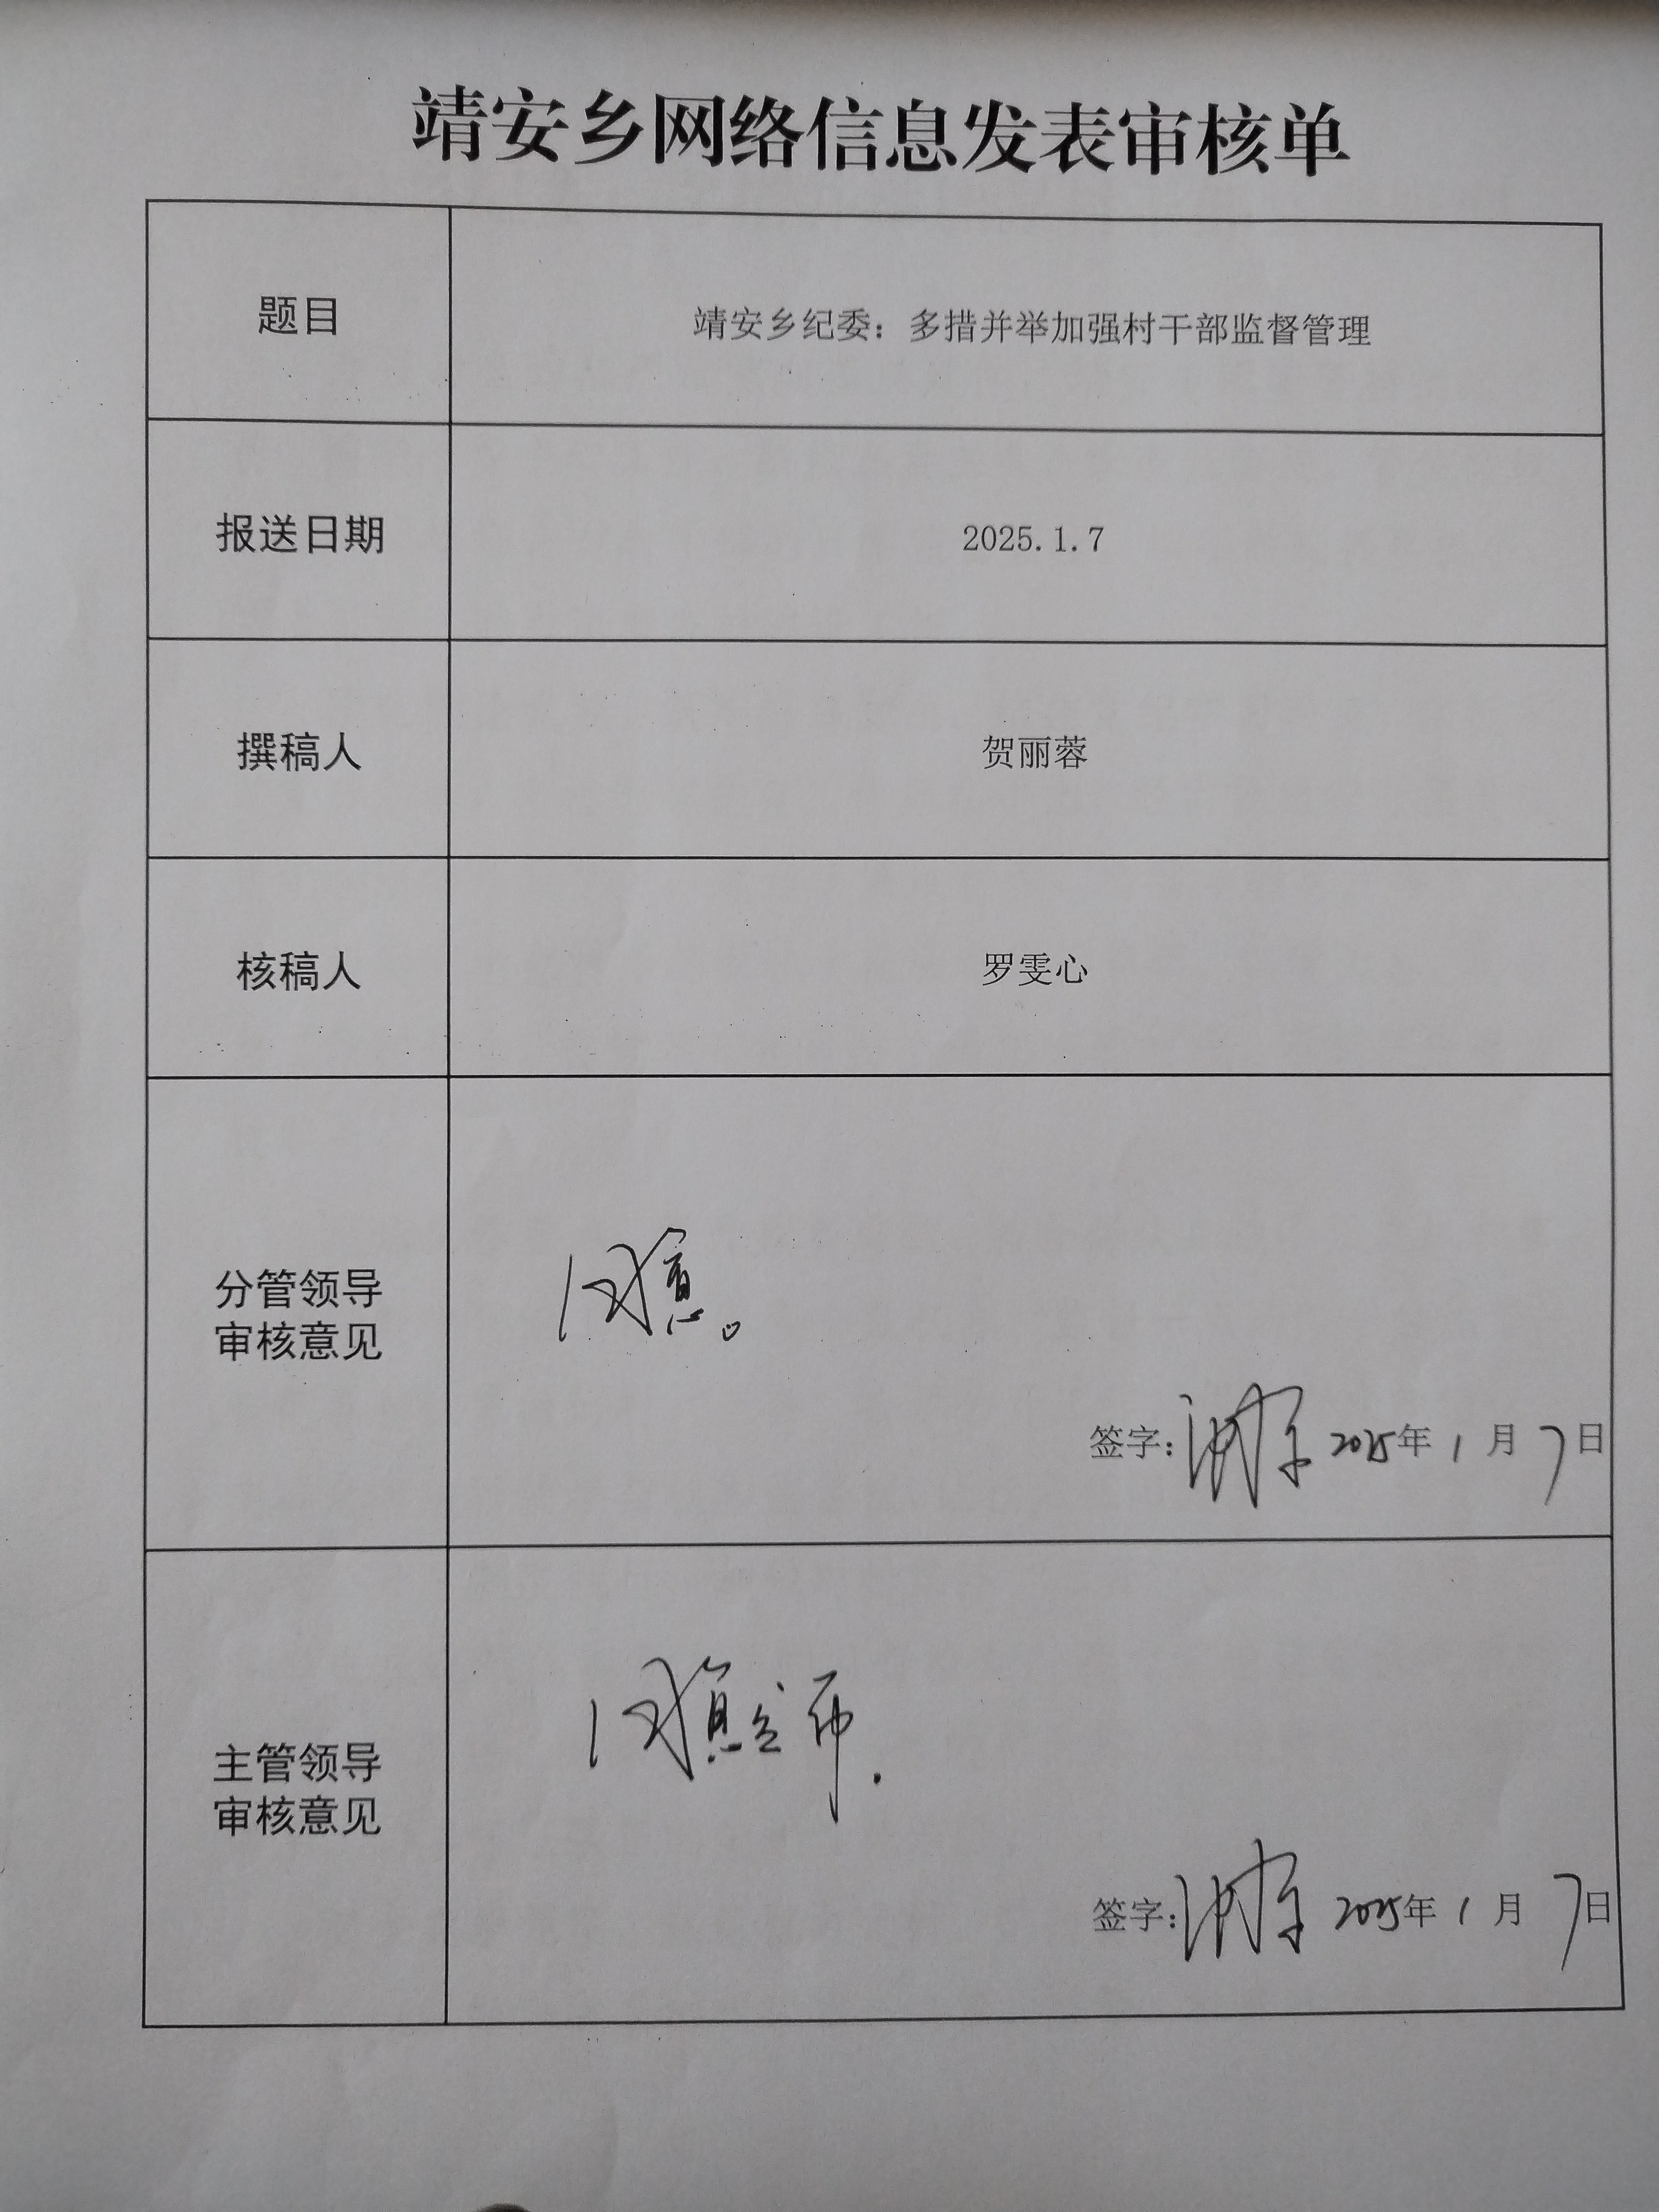 靖安乡网络信息发表审核单
题目
靖安乡纪委：多措并举加强村干部监督管理
报送日期
2025.1.7
撰稿人
贺丽蓉
核稿人
罗雯心
分管领导
审核意见
同意。
签字： 2025年1月7日
主管领导
审核意见
同意公布.
签字： 2025年1月7日